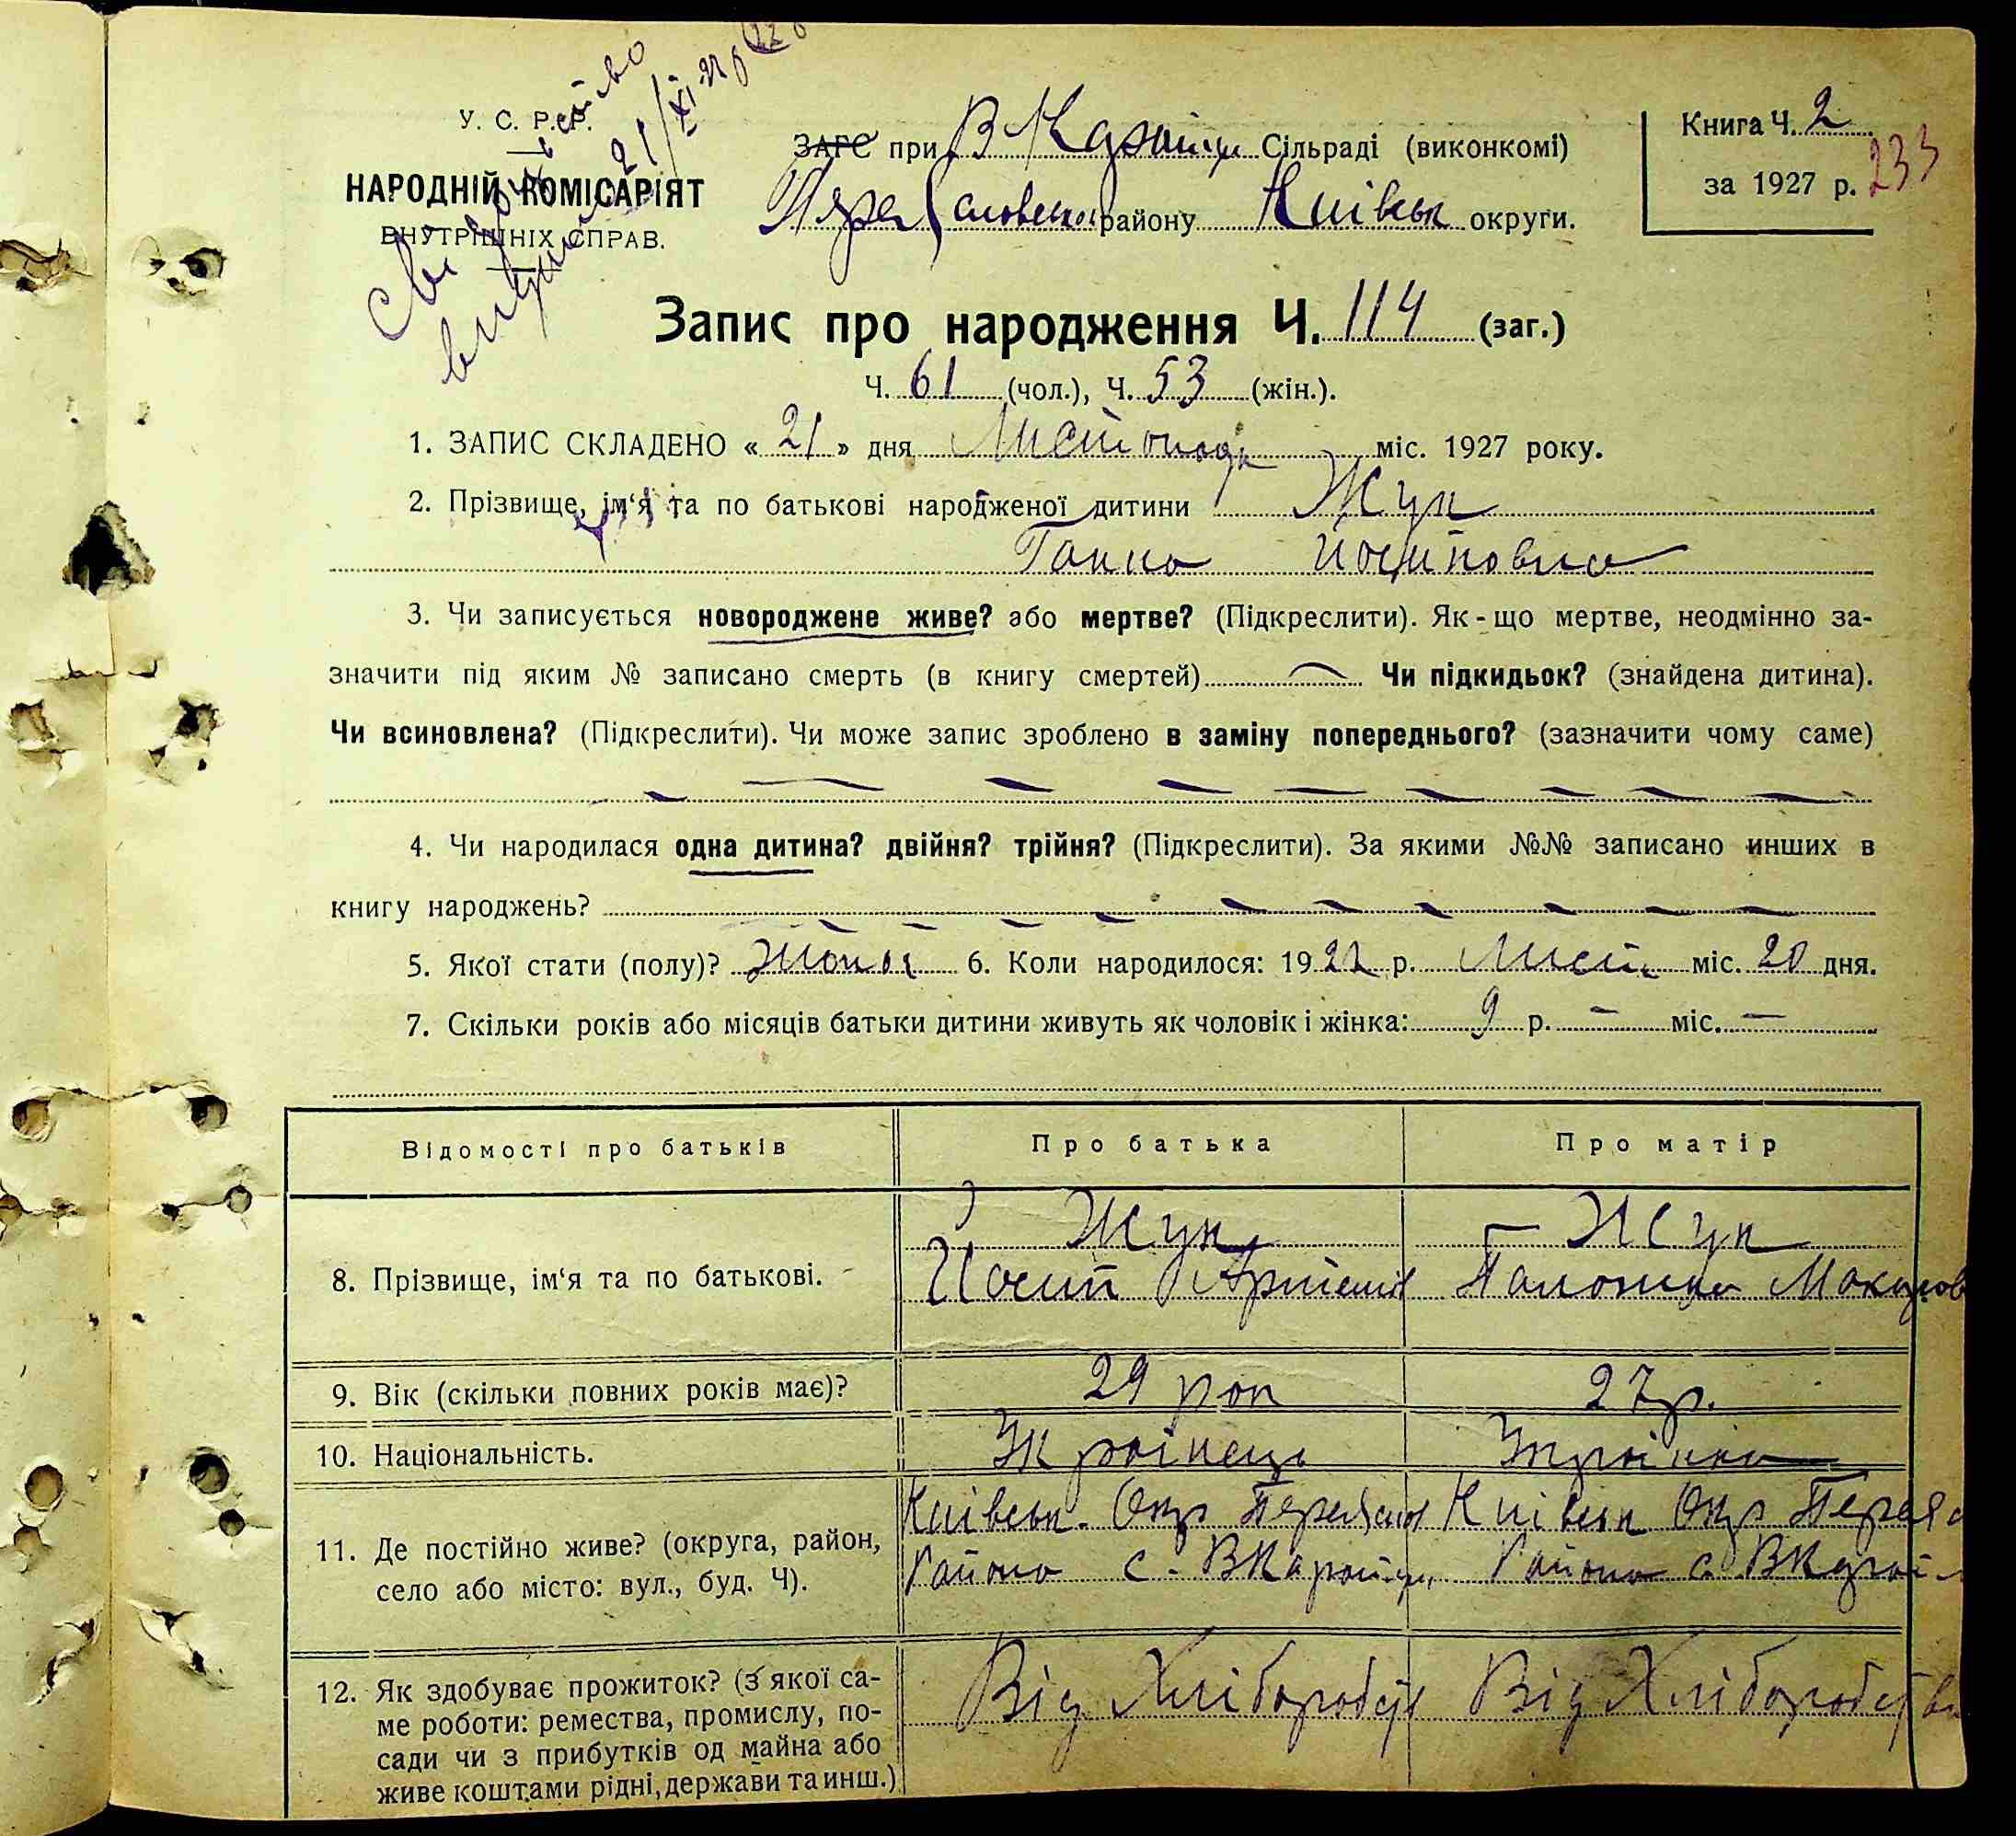 Свідоцтво
видано 21/XI 27 р
У. С. Р. Р.
НАРОДНІЙ КОМІСАРІЯТ
ВНУТРІШНІХ СПРАВ.
ЗАГС при В Каратул Сільраді (виконкомі)
Переяславськ району Київськ округи.
Книга Ч. 2
за 1927 р.
233
Запис про народження Ч. 114 (заг.)
Ч. 61 (чол.), Ч. 53 (жін.).
1. ЗАПИС СКЛАДЕНО « 21 » дня Листопада міс. 1927 року.
2. Прізвище, ім‘я та по батькові народженої дитини Жук
Ганна Йосиповна
3. Чи записується новороджене живе? або мертве? (Підкреслити). Як-що мертве, неодмінно за-
значити під яким № записано смерть (в книгу смертей) Чи підкидьок? (знайдена дитина).
Чи всиновлена? (Підкреслити). Чи може запис зроблено в заміну попереднього? (зазначити чому саме)
4. Чи народилася одна дитина? двійня? трійня? (Підкреслити). За якими №№ записано инших в
книгу народжень?
5. Якої стати (полу)? 6. Коли народилося: 1927 р. Лист. міс. 20 дня.
7. Скільки років або місяців батьки дитини живуть як чоловік і жінка: 9 р. — міс. —
Відомості про батьків Про батька Про матір
8. Прізвище, ім‘я та по батькові.
Жук
Йосип Артемів
Жук
Палажка
9. Вік (скільки повних років має)? 29 рок 27 р.
10. Національність. Українець Українка
11. Де постійно живе? (округа, район,
село або місто: вул., буд. Ч).
Київськ. Окр Переяслов
Района с. В Каратул
Київськ Окр Переяс
Района с. В Карат
12. Як здобуває прожиток? (з якої са-
ме роботи: ремества, промислу, по-
сади чи з прибутків од майна або
живе коштами рідні, держави та инш.)
Від Хліборобств
Від Хліборобства